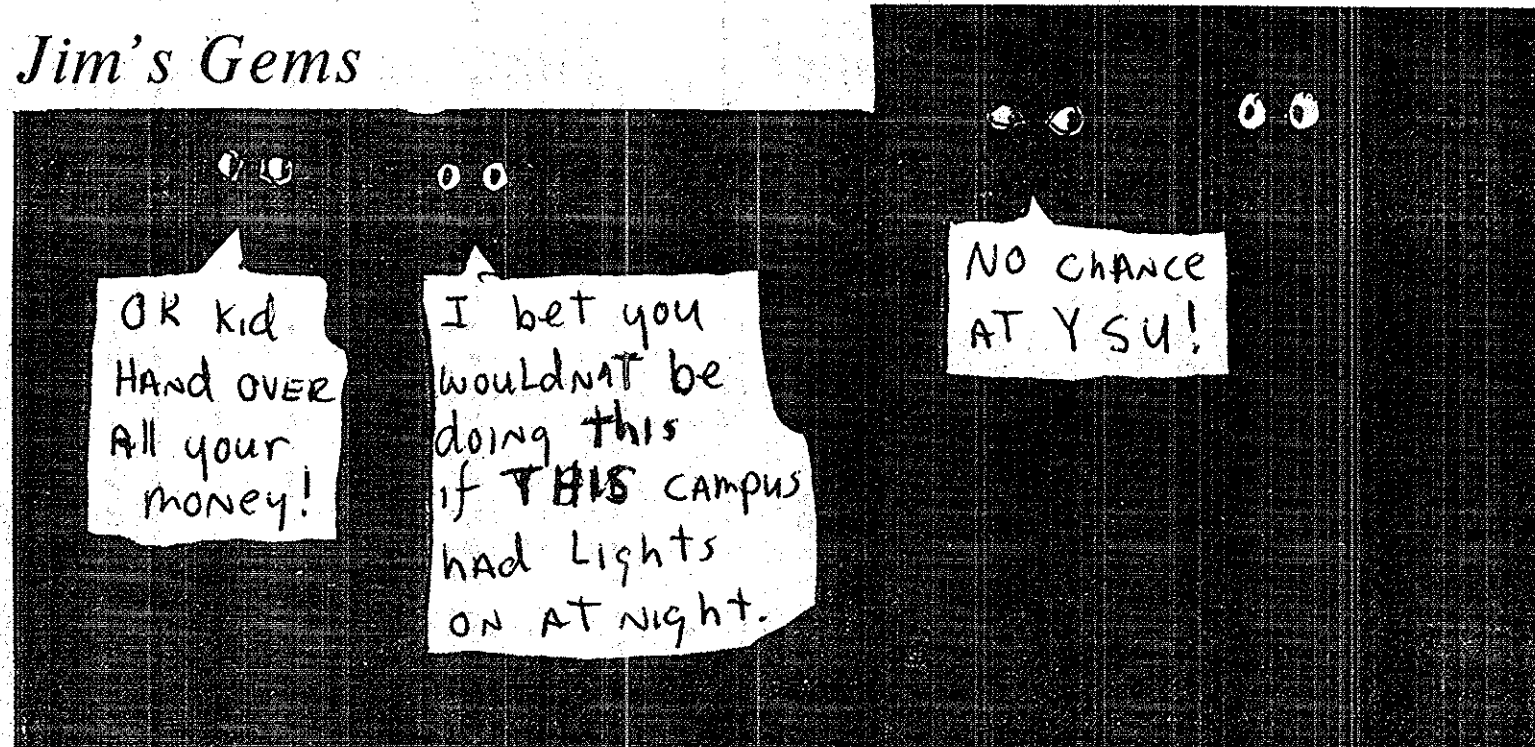 Jim's Gems
OK kid
HANd OVER
All your
MONEY!
I bet you
wouLdNAT be
doiNg this
if THIS CAMPUS
hAd Lights
ON AT Night.
NO ChANCE
AT YSU!